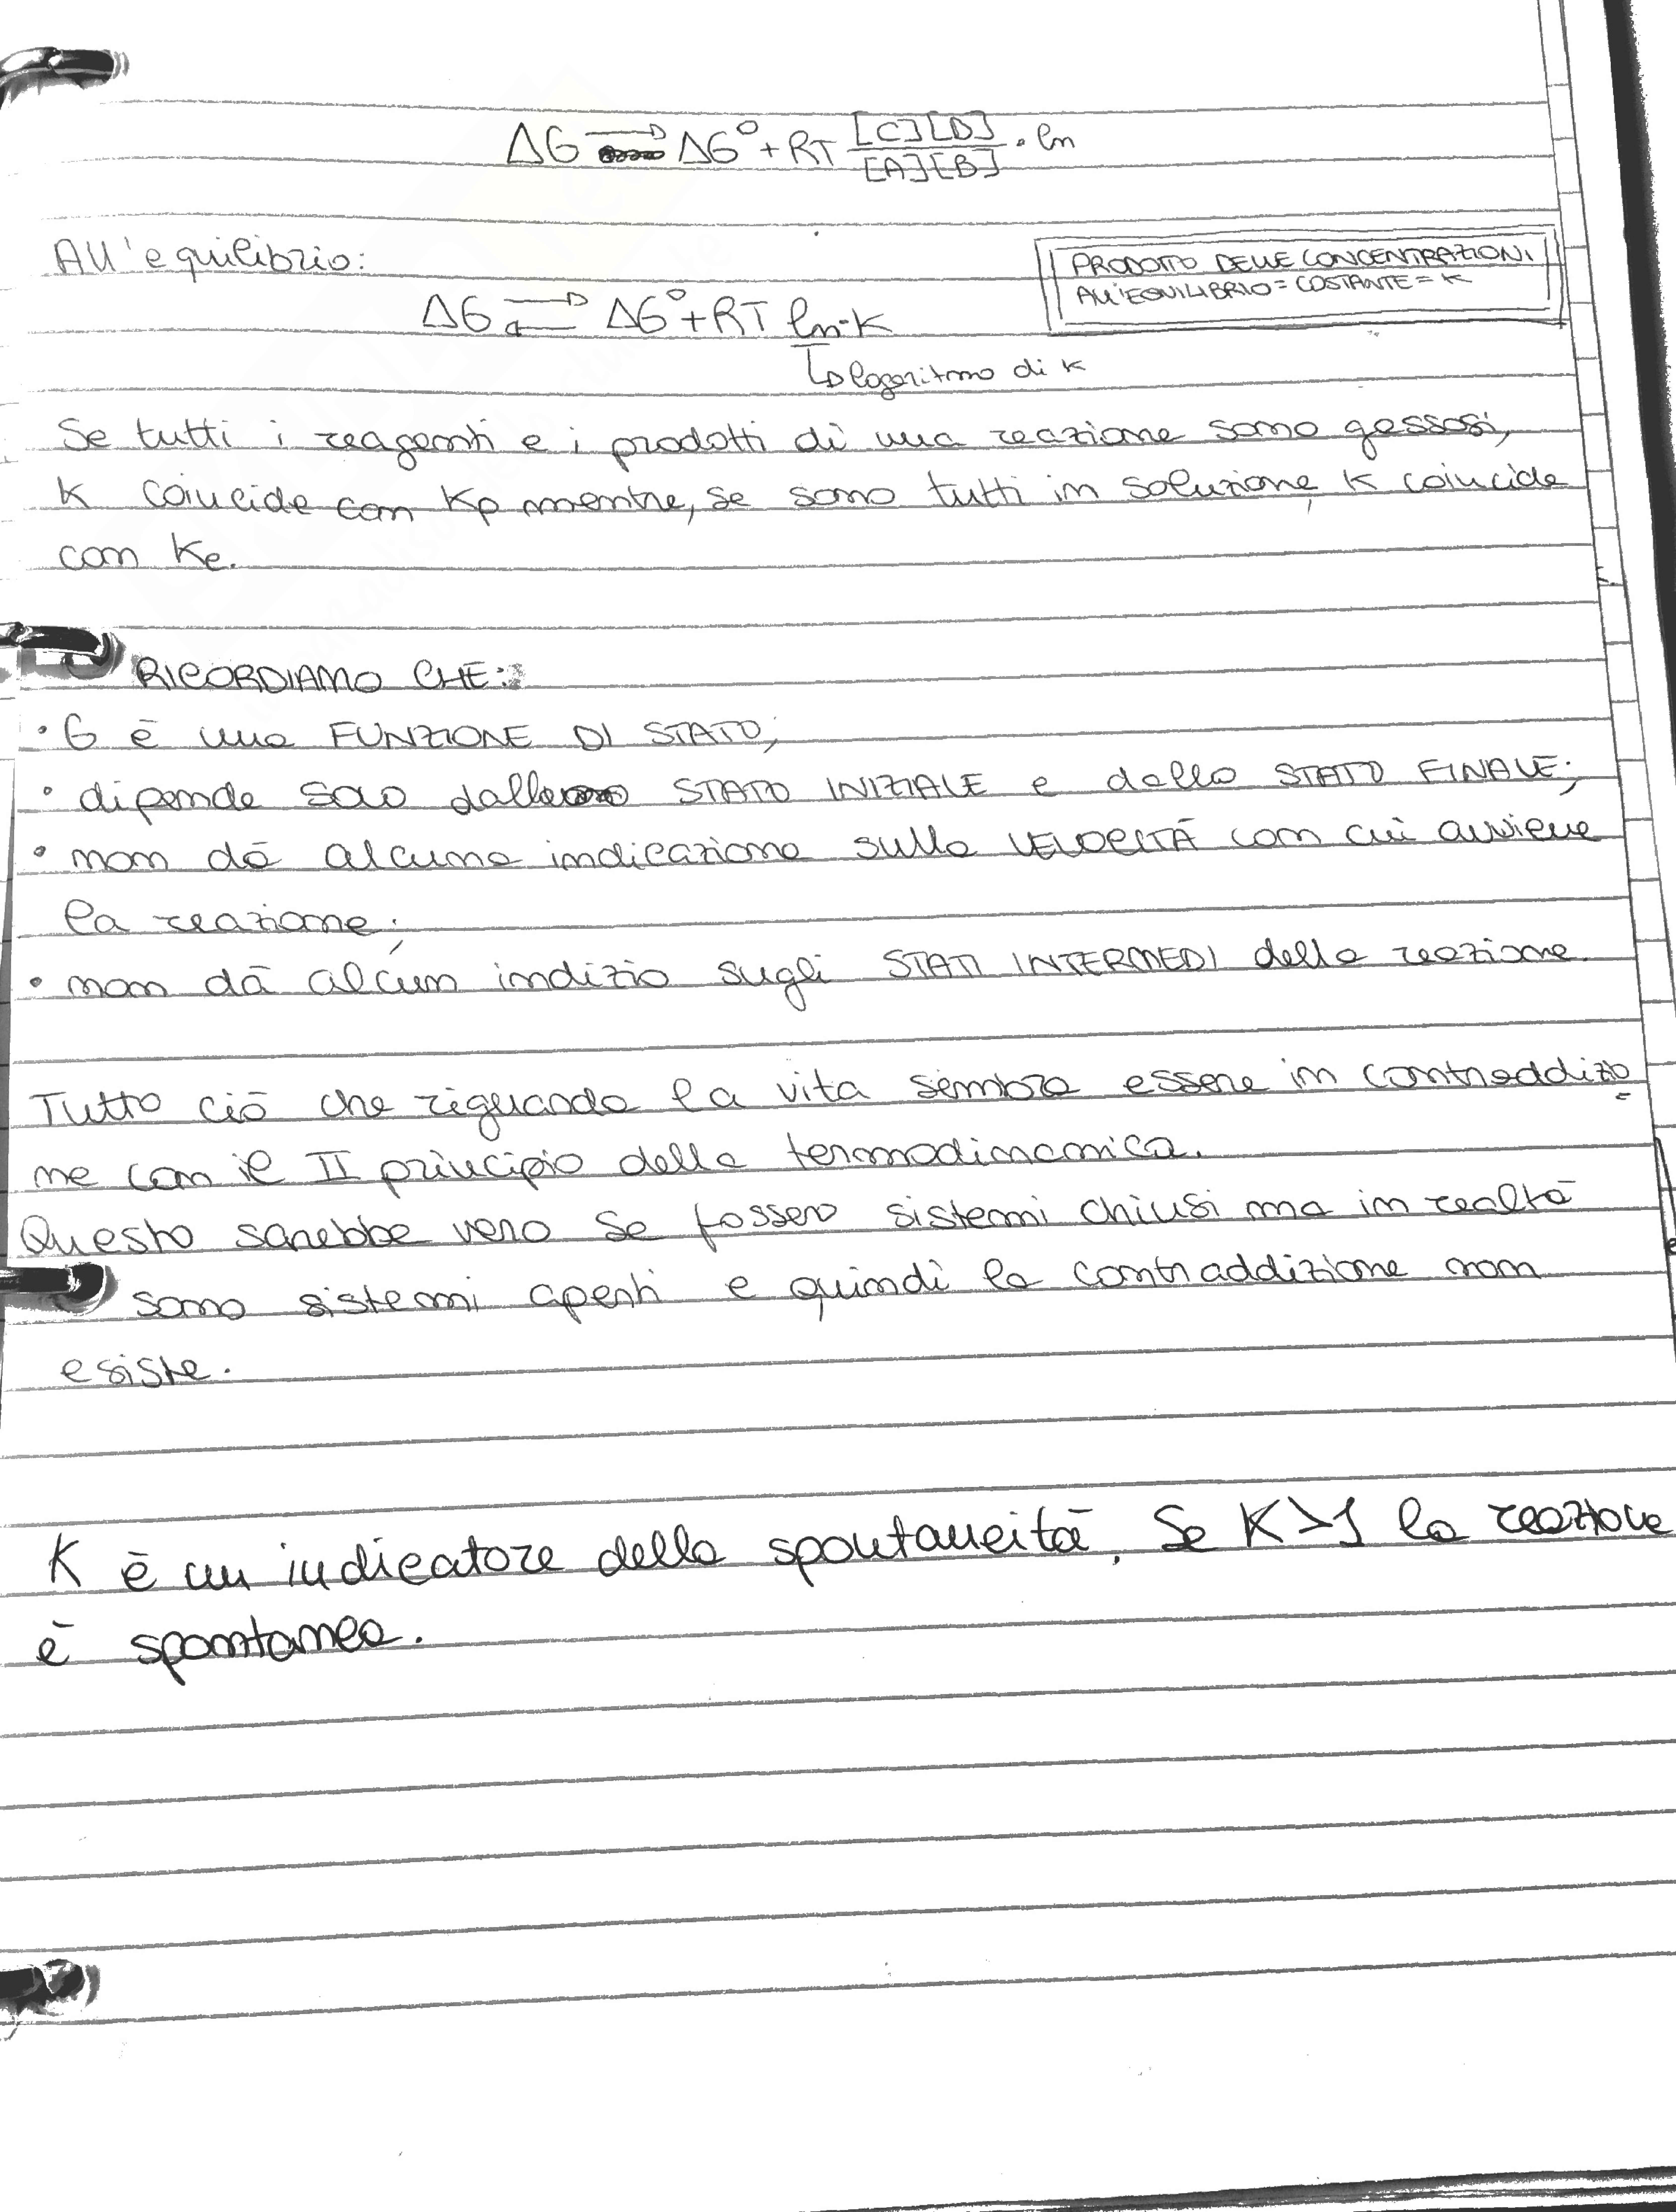 ΔG → ΔG° + RT [C][D]/[A][B] · ln
All'equilibrio:
PRODOTTO DELLE CONCENTRAZIONI
ALL'EQUILIBRIO = COSTANTE = K
ΔG ⇄ ΔG° + RT ln·K
↳ logaritmo di K
Se tutti i reagenti e i prodotti di una reazione sono gassosi,
K coincide con Kp mentre, se sono tutti in soluzione, K coincide
con Kc.
RICORDIAMO CHE:
· G è una FUNZIONE DI STATO;
· dipende solo dallo STATO INIZIALE e dallo STATO FINALE;
· non dà alcuna indicazione sulla VELOCITÀ con cui avviene
la reazione;
· non dà alcun indizio sugli STATI INTERMEDI della reazione.
Tutto ciò che riguarda la vita sembra essere in contraddizio
ne con il II principio della termodinamica.
Questo sarebbe vero se fossero sistemi chiusi ma in realtà
sono sistemi aperti e quindi la contraddizione non
esiste.
K è un indicatore della spontaneità. Se K>1 la reazione
è spontanea.